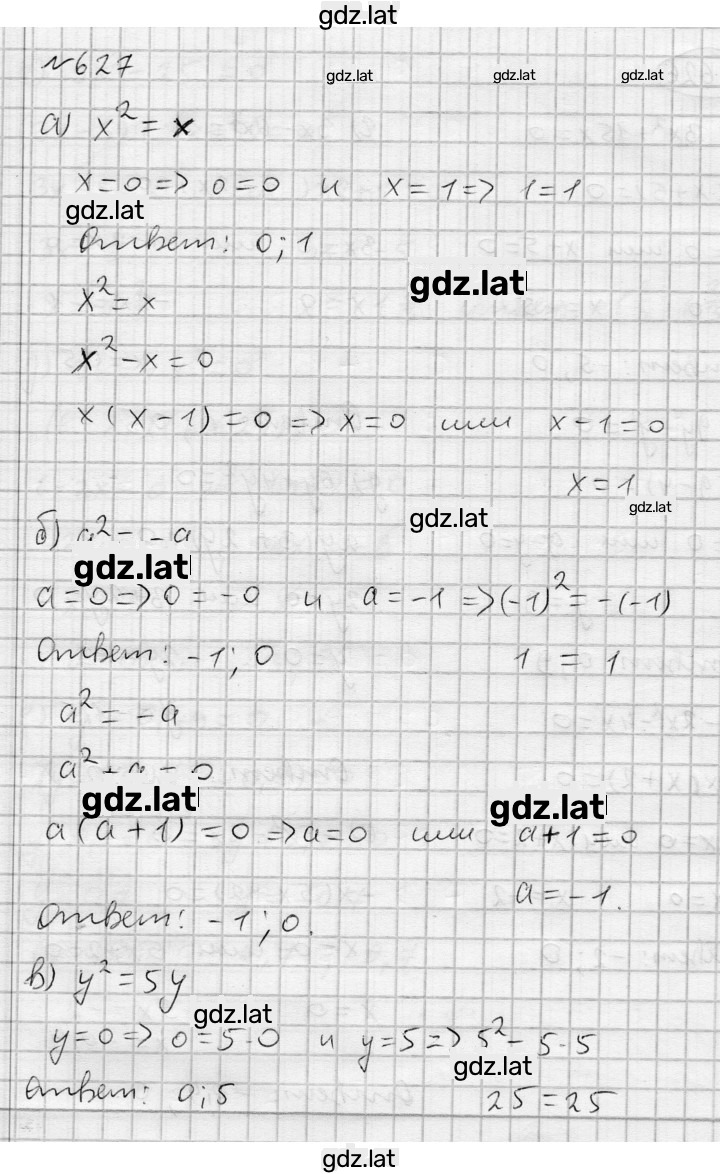 gdz.lat
№627
gdz.lat gdz.lat gdz.lat
а) x² = x
x = 0 => 0 = 0 и x = 1 => 1 = 1
gdz.lat
Ответ: 0; 1
gdz.lat
x² = x
x² - x = 0
x (x - 1) = 0 => x = 0 или x - 1 = 0
x = 1
gdz.lat
gdz.lat
б) a² = - a
gdz.lat
a = 0 => 0 = -0 и a = -1 => (-1)² = -(-1)
Ответ: -1; 0 1 = 1
a² = -a
a² + a = 0
gdz.lat gdz.lat
a (a + 1) = 0 => a = 0 или a + 1 = 0
a = -1.
Ответ: -1; 0.
в) y² = 5y
gdz.lat
y = 0 => 0 = 5·0 и y = 5 => 5² - 5·5
gdz.lat
Ответ: 0; 5 25 = 25
gdz.lat